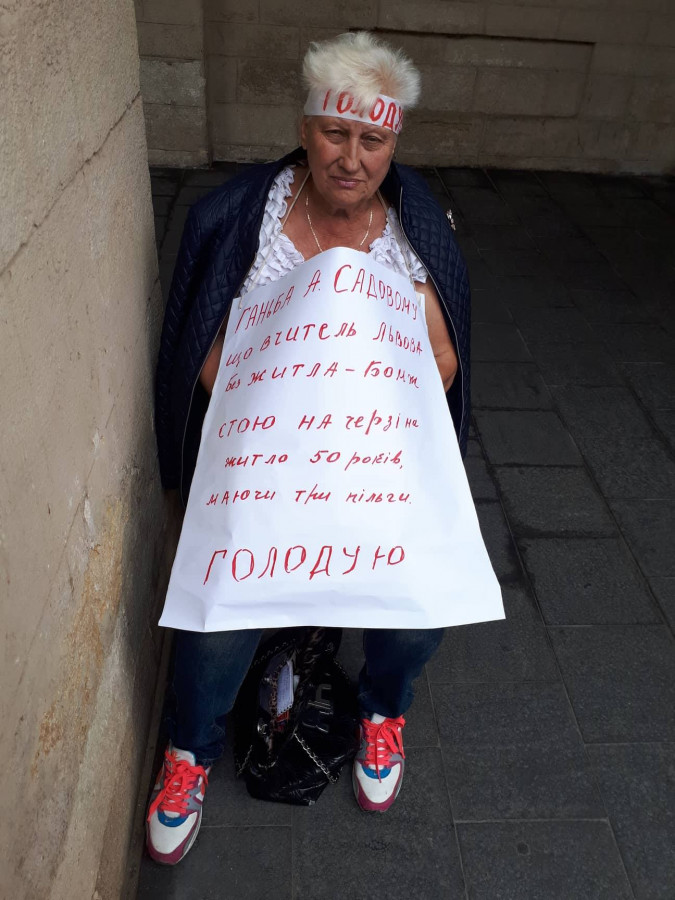 ГОЛОДУ
ГАНЬБА А. САДОВОМУ
ЩО ВЧИТЕЛЬ ЛЬВОВА
без ЖИТЛА - Бомж
СТОЮ НА черзі на
житло 50 років,
маючи три пільги.
ГОЛОДУЮ